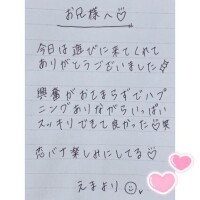 お兄様へ♡
今日は遊びに来てくれて
ありがとうございました
興奮がおさまらずでハプ
ニングありながらいっぱい
スッキリできて良かった♡笑
恋バナ楽しみにしてる♡
えまより☺